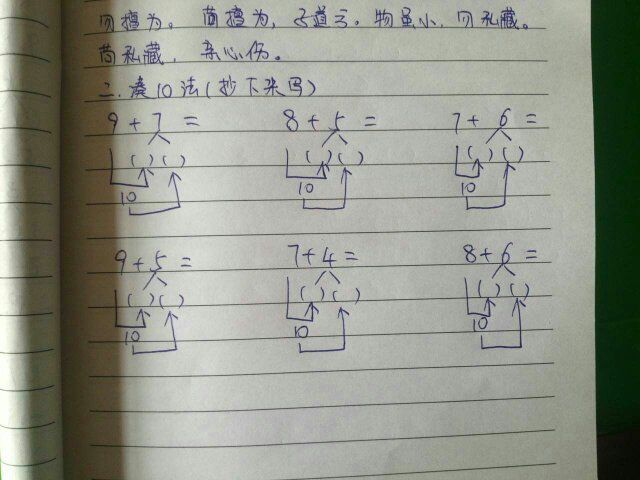 勿擅为。苟擅为，子道亏。物虽小，勿私藏。
苟私藏，亲心伤。
二.凑10法(抄下来写)
9+7= 8+5= 7+6=
( )( ) ( )( ) ( )( )
10 10 10
9+5= 7+4= 8+6=
( )( ) ( )( ) ( )( )
10 10 10